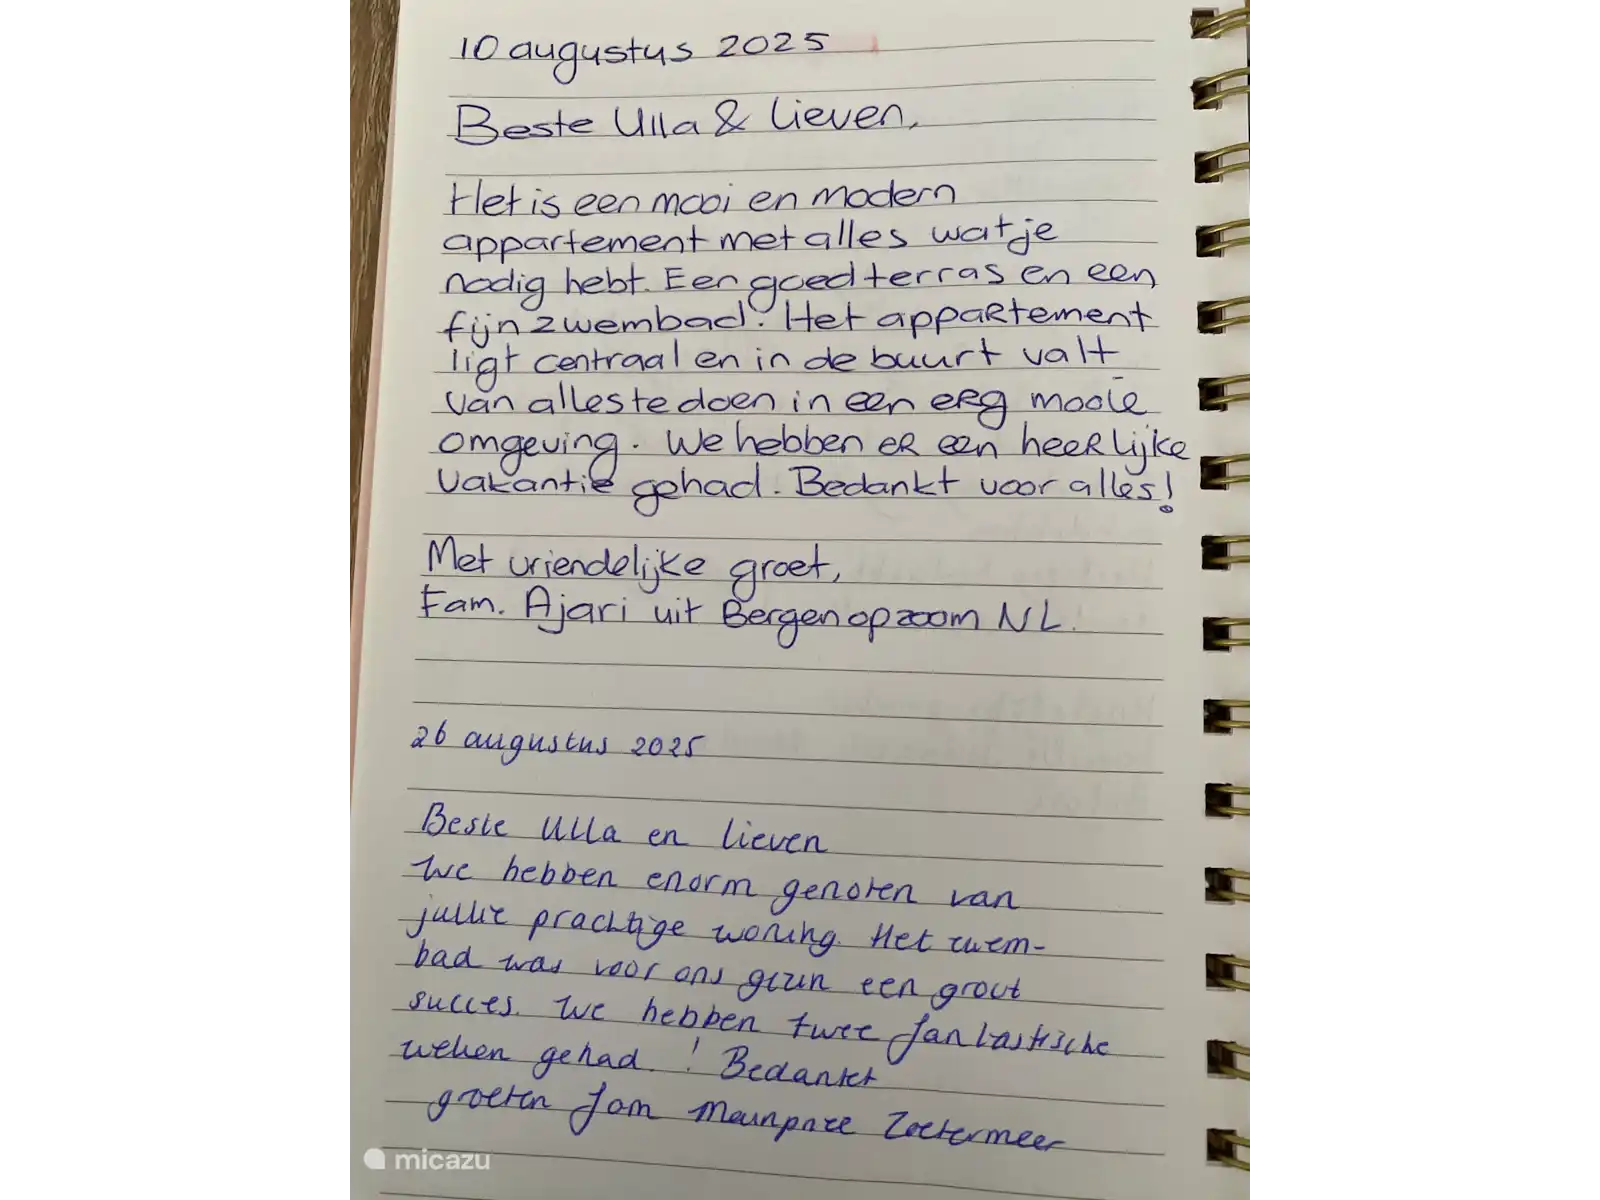 10 augustus 2025
Beste Ulla & Lieven,
Het is een mooi en modern
appartement met alles wat je
nodig hebt. Een goed terras en een
fijn zwembad. Het appartement
ligt centraal en in de buurt valt
van alles te doen in een erg mooie
omgeving. We hebben er een heerlijke
vakantie gehad. Bedankt voor alles!
Met vriendelijke groet,
Fam. Ajari uit Bergen op zoom NL.
26 augustus 2025
Beste Ulla en Lieven
We hebben enorm genoten van
jullie prachtige woning. Het zwem-
bad was voor ons gezin een groot
succes. We hebben twee fantastische
weken gehad.! Bedankt
groeten fam Zoetermeer
micazu